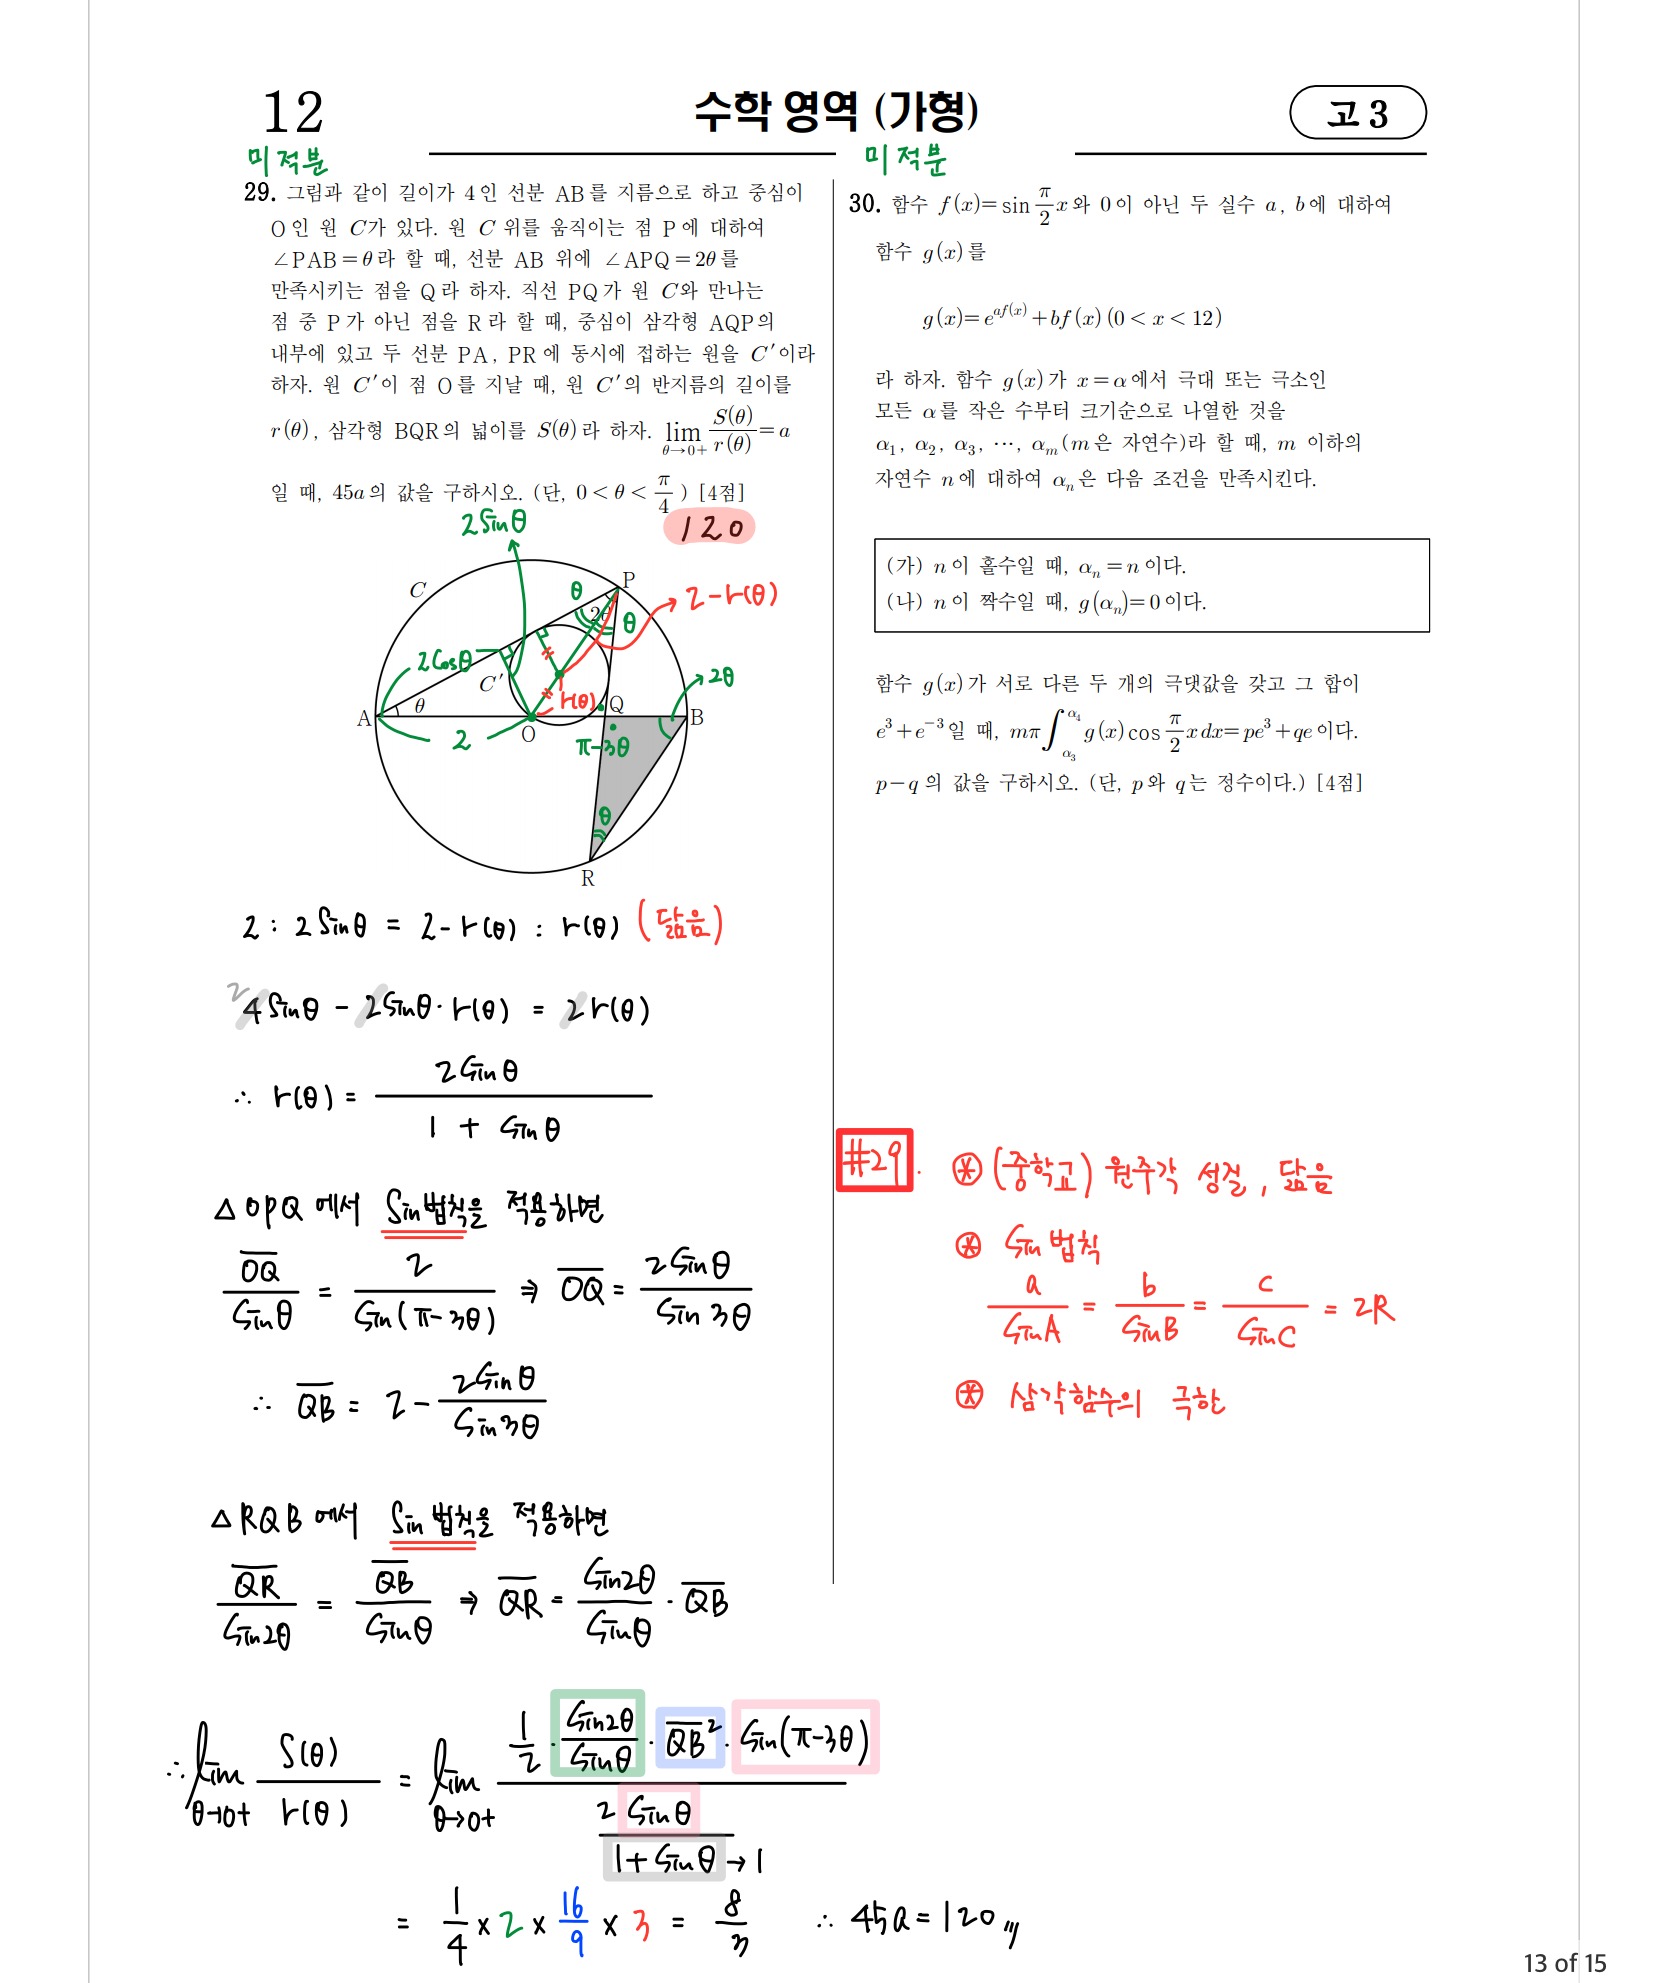 12
수학 영역 (가형)
고 3
미적분
29. 그림과 같이 길이가 4인 선분 AB를 지름으로 하고 중심이
O인 원 C가 있다. 원 C 위를 움직이는 점 P에 대하여
∠PAB=θ라 할 때, 선분 AB 위에 ∠APQ=2θ를
만족시키는 점을 Q라 하자. 직선 PQ가 원 C와 만나는
점 중 P가 아닌 점을 R라 할 때, 중심이 삼각형 AQP의
내부에 있고 두 선분 PA, PR에 동시에 접하는 원을 C′이라
하자. 원 C′이 점 O를 지날 때, 원 C′의 반지름의 길이를
r(θ), 삼각형 BQR의 넓이를 S(θ)라 하자. lim θ→0+ S(θ)/r(θ) = a
일 때, 45a의 값을 구하시오. (단, 0<θ<π/4) [4점]
120
2Sinθ
C
P
θ
2θ
θ
2-r(θ)
2Cosθ
C′
r(θ)
Q
2θ
A
θ
O
B
2
π-3θ
θ
R
2 : 2Sinθ = 2-r(θ) : r(θ) (닮음)
2
4Sinθ - 2Sinθ·r(θ) = 2r(θ)
∴ r(θ) = 2Sinθ / (1 + Sinθ)
△OPQ에서 Sin법칙을 적용하면
OQ/Sinθ = 2/Sin(π-3θ) ⇒ OQ = 2Sinθ/Sin3θ
∴ QB = 2 - 2Sinθ/Sin3θ
△RQB에서 Sin법칙을 적용하면
QR/Sin2θ = QB/Sinθ ⇒ QR = Sin2θ/Sinθ · QB
∴ lim θ→0+ S(θ)/r(θ) = lim θ→0+ (1/2 · Sin2θ/Sinθ · QB² · Sin(π-3θ)) / (2Sinθ / (1+Sinθ)) →1
= 1/4 × 2 × 16/9 × 3 = 8/3 ∴ 45a = 120 〃
미적분
30. 함수 f(x)=sin π/2 x와 0이 아닌 두 실수 a, b에 대하여
함수 g(x)를
g(x)=e^{af(x)}+bf(x) (0<x<12)
라 하자. 함수 g(x)가 x=α에서 극대 또는 극소인
모든 α를 작은 수부터 크기순으로 나열한 것을
α₁, α₂, α₃, ⋯, αₘ (m은 자연수)라 할 때, m 이하의
자연수 n에 대하여 αₙ은 다음 조건을 만족시킨다.
(가) n이 홀수일 때, αₙ=n이다.
(나) n이 짝수일 때, g(αₙ)=0이다.
함수 g(x)가 서로 다른 두 개의 극댓값을 갖고 그 합이
e³+e⁻³일 때, mπ∫_{α₃}^{α₄} g(x)cos π/2 x dx = pe³+qe이다.
p-q의 값을 구하시오. (단, p와 q는 정수이다.) [4점]
#29. ⊛ (중학교) 원주각 성질, 닮음
⊛ Sin 법칙
a/SinA = b/SinB = c/SinC = 2R
⊛ 삼각함수의 극한
13 of 15